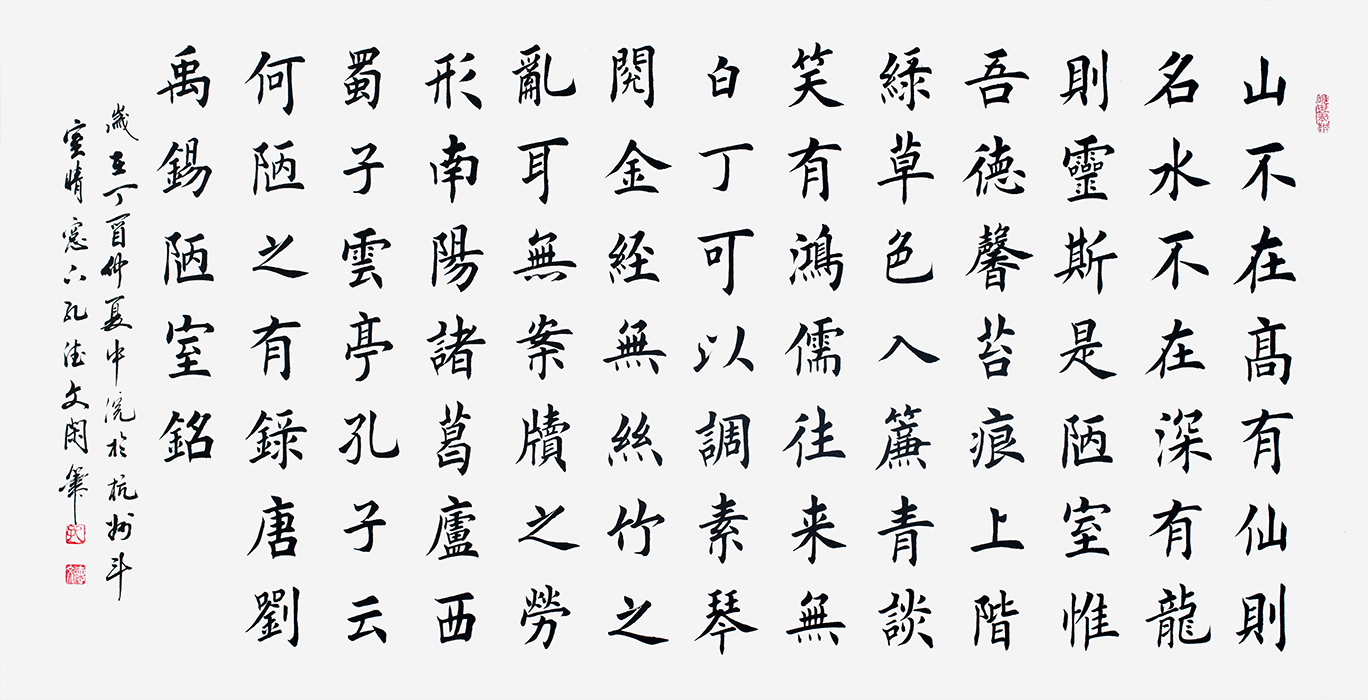 山不在髙有仙則
名水不在深有龍
則靈斯是陋室惟
吾德馨苔痕上階
緑草色入簾青談
笑有鴻儒往来無
白丁可以調素琴
閱金經無絲竹之
亂耳無案牘之勞
形南陽諸葛廬西
蜀子雲亭孔子云
何陋之有録唐劉
禹錫陋室銘
歲在丁酉仲夏中浣於杭州斗
室晴窓下孔德文閑筆